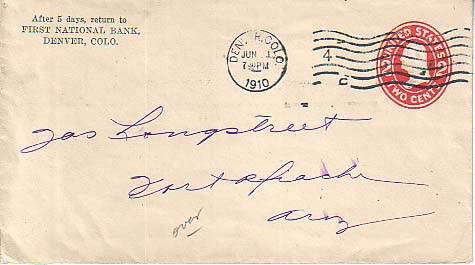 After 5 days, return to
FIRST NATIONAL BANK,
DENVER, COLO.
DENVER, COLO.
JUN 1
7 PM
1910
4
C
UNITED STATES
TWO CENTS
Jas Longstreet
Fort Apache
Ariz
over